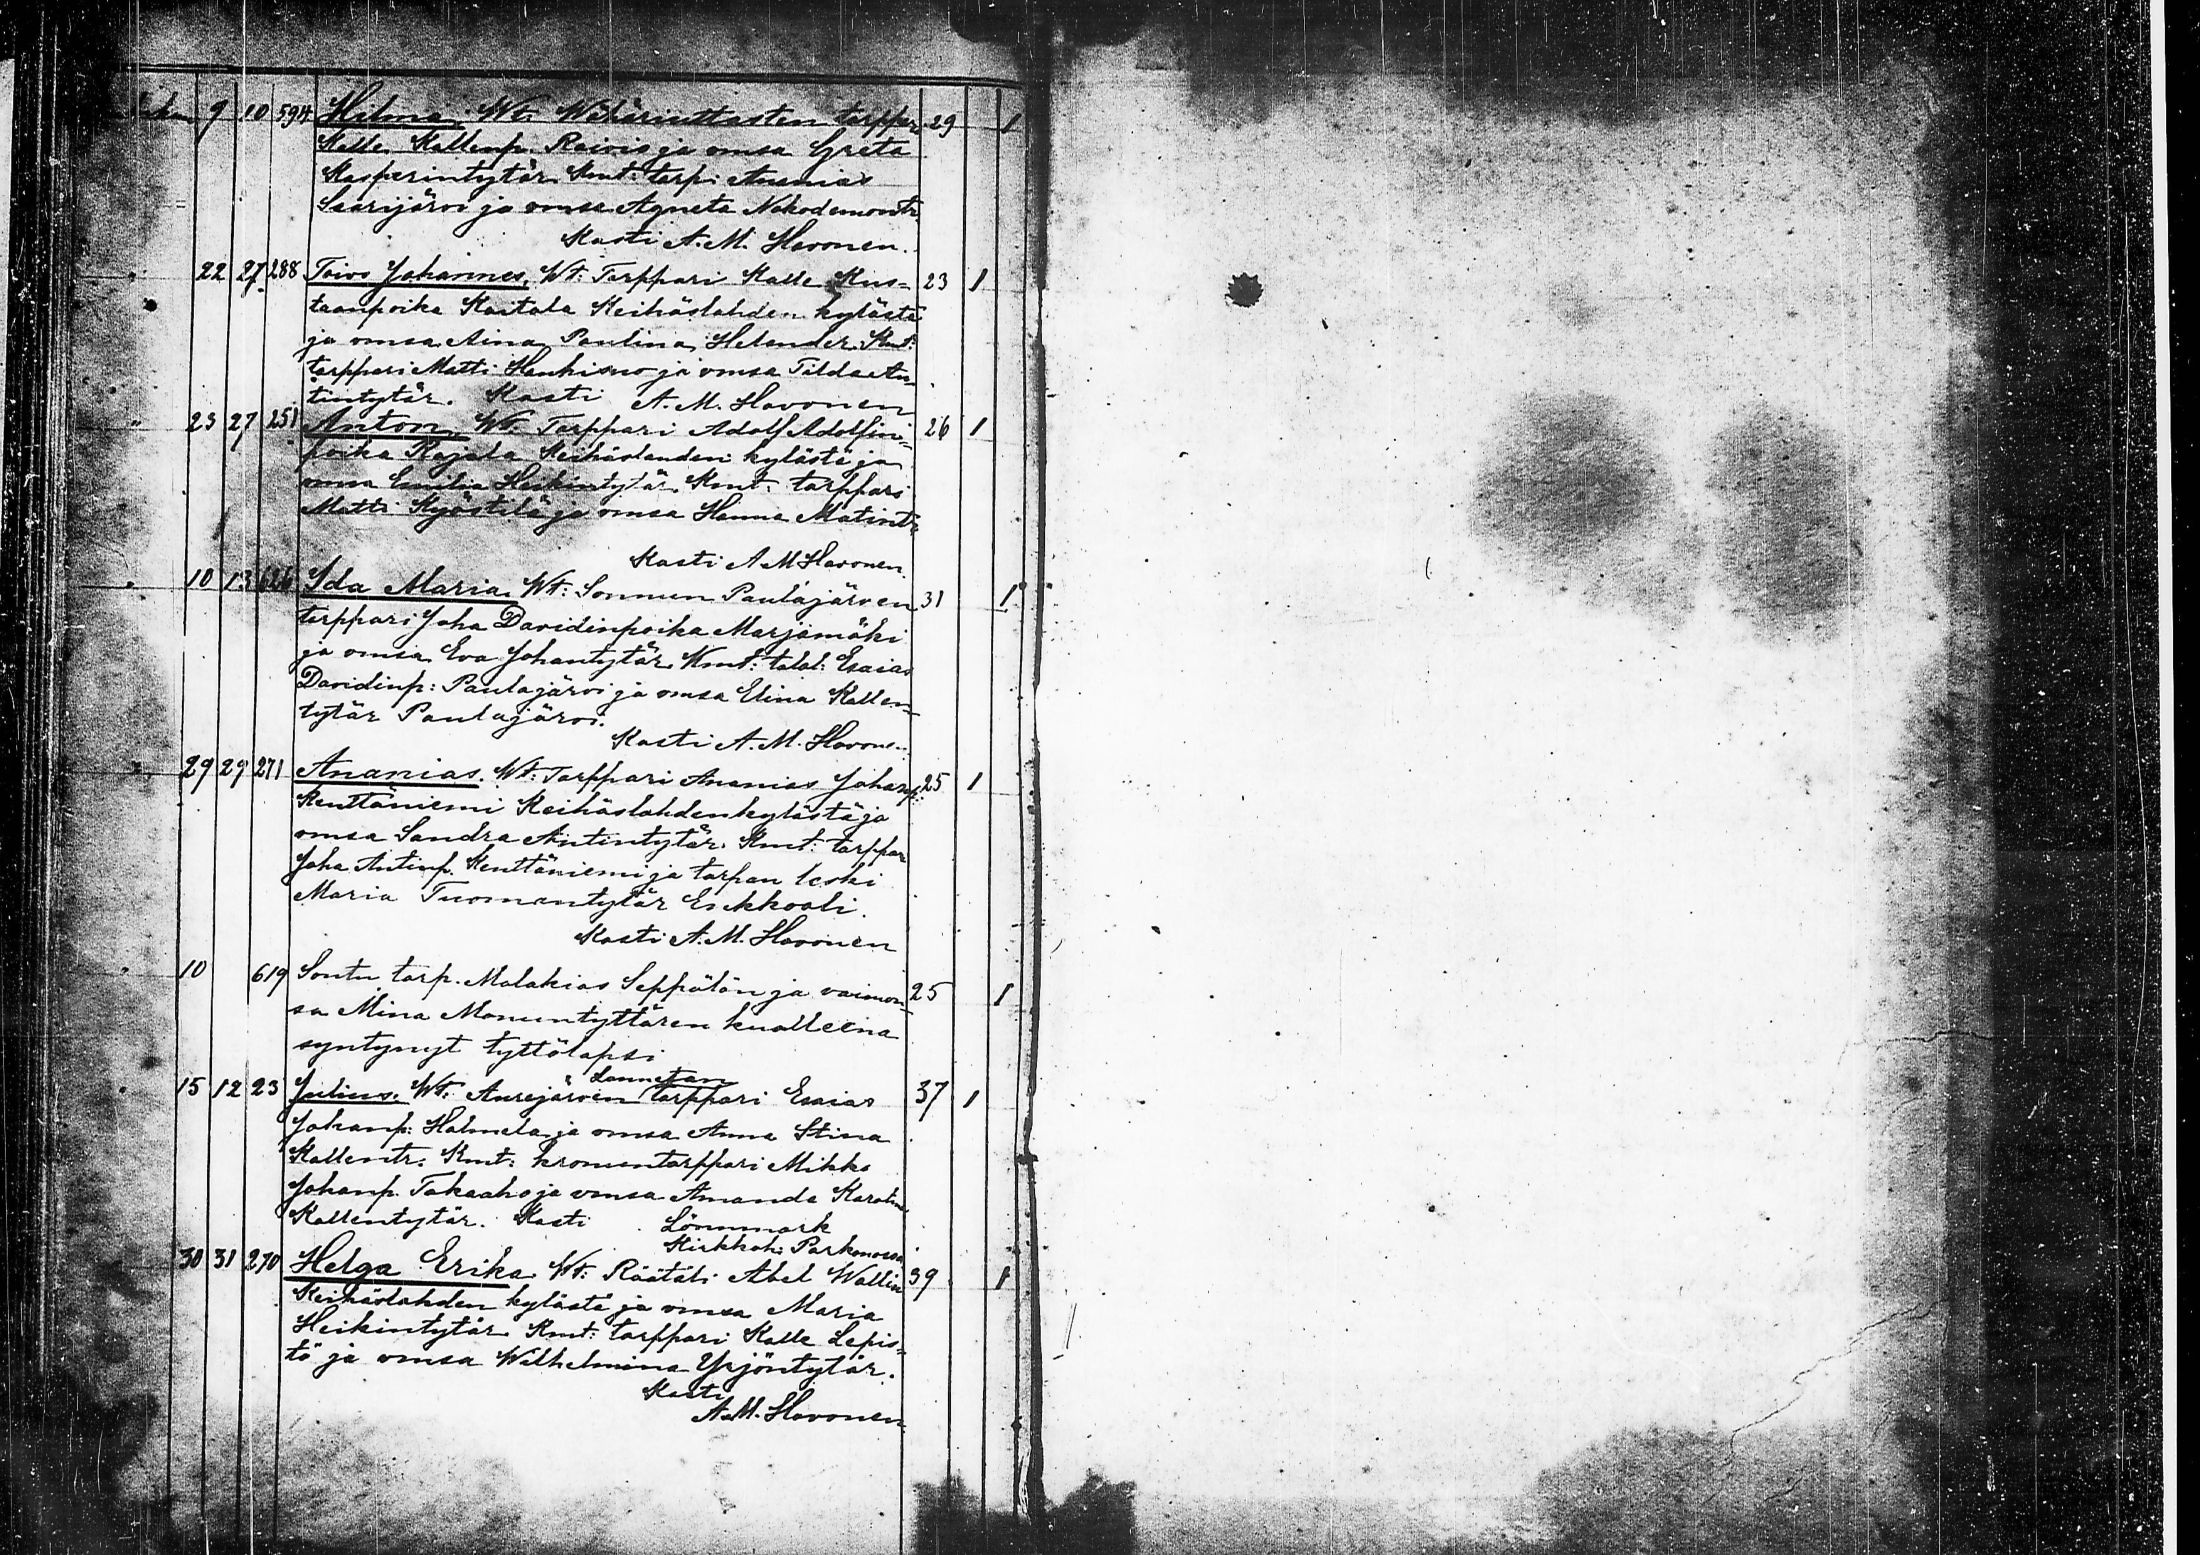 9 10 594 Hilma. Wt. tarppr. 29 1
Kalle Kallenp. Raivio ja omsa Greta
Kasperintytär. Kmt: tarp: Ananias
Saarijärvi ja omsa Agneta Nikodemontr.
Kasti A. M. Havonen.
22 27 288 Toivo Johannes. Wt: Torppari Kalle Kus= 23 1
taanpoika Kaitala Keihäslahden kylästä
ja omsa Aina Paulina Helander. Kmt:
torppari Matti Hanhisuo ja omsa Tilda An=
tintytär. Kasti A. M. Havonen
23 27 251 Anton. Wt: Torppari Adolf Adolfin= 26 1
poika Rajala Keihäslahden kylästä ja
omsa Emilia Heikintytär. Kmt: torppari
Matti Kyöstilä ja omsa Hanna Matintr.
Kasti A M Havonen.
10 13 626 Ida Maria. Wt: Sommun Paulajärven 31 1
torppari Joha Davidinpoika Marjamäki
ja omsa Eva Johantytär. Kmt: talol: Esaias
Davidinp: Paulajärvi ja omsa Elina Kallen=
tytär Paulajärvi.
Kasti A. M. Havonen.
29 29 271 Ananias. Wt: Torppari Ananias Johanp: 25 1
Kenttäniemi Keihäslahden kylästä ja
omsa Sandra Antintytär. Kmt: torppar
Joha Antinp. Kenttäniemi ja torpan leski
Maria Tuomantytär Eskkoali.
Kasti A. M. Havonen
10 619 Sontu torp. Malakias Seppälän ja vaimon= 25 1
sa Mina Manuntyttären kuolleena
syntynyt tyttölapsi
Lannetan
15 12 23 Julius. Wt. Aurejärven torppari Esaias 37 1
Johanp: Halmela ja omsa Anna Stina
Kallentr. Kmt: kronuntorppari Mikko
Johanp. Takaaho ja omsa Amanda Karolina
Kallentytär. Kasti Lönnmark
Kirkkoh: Parkanossa.
30 31 270 Helga Erika. Wt: Räätäli Abel Wallin 39 1
Keihäslahden kylästä ja omsa Maria
Heikintytär. Kmt: torppari Kalle Lepis=
tö ja omsa Wilhelmina Yrjöntytär.
Kasti
A. M. Havonen.